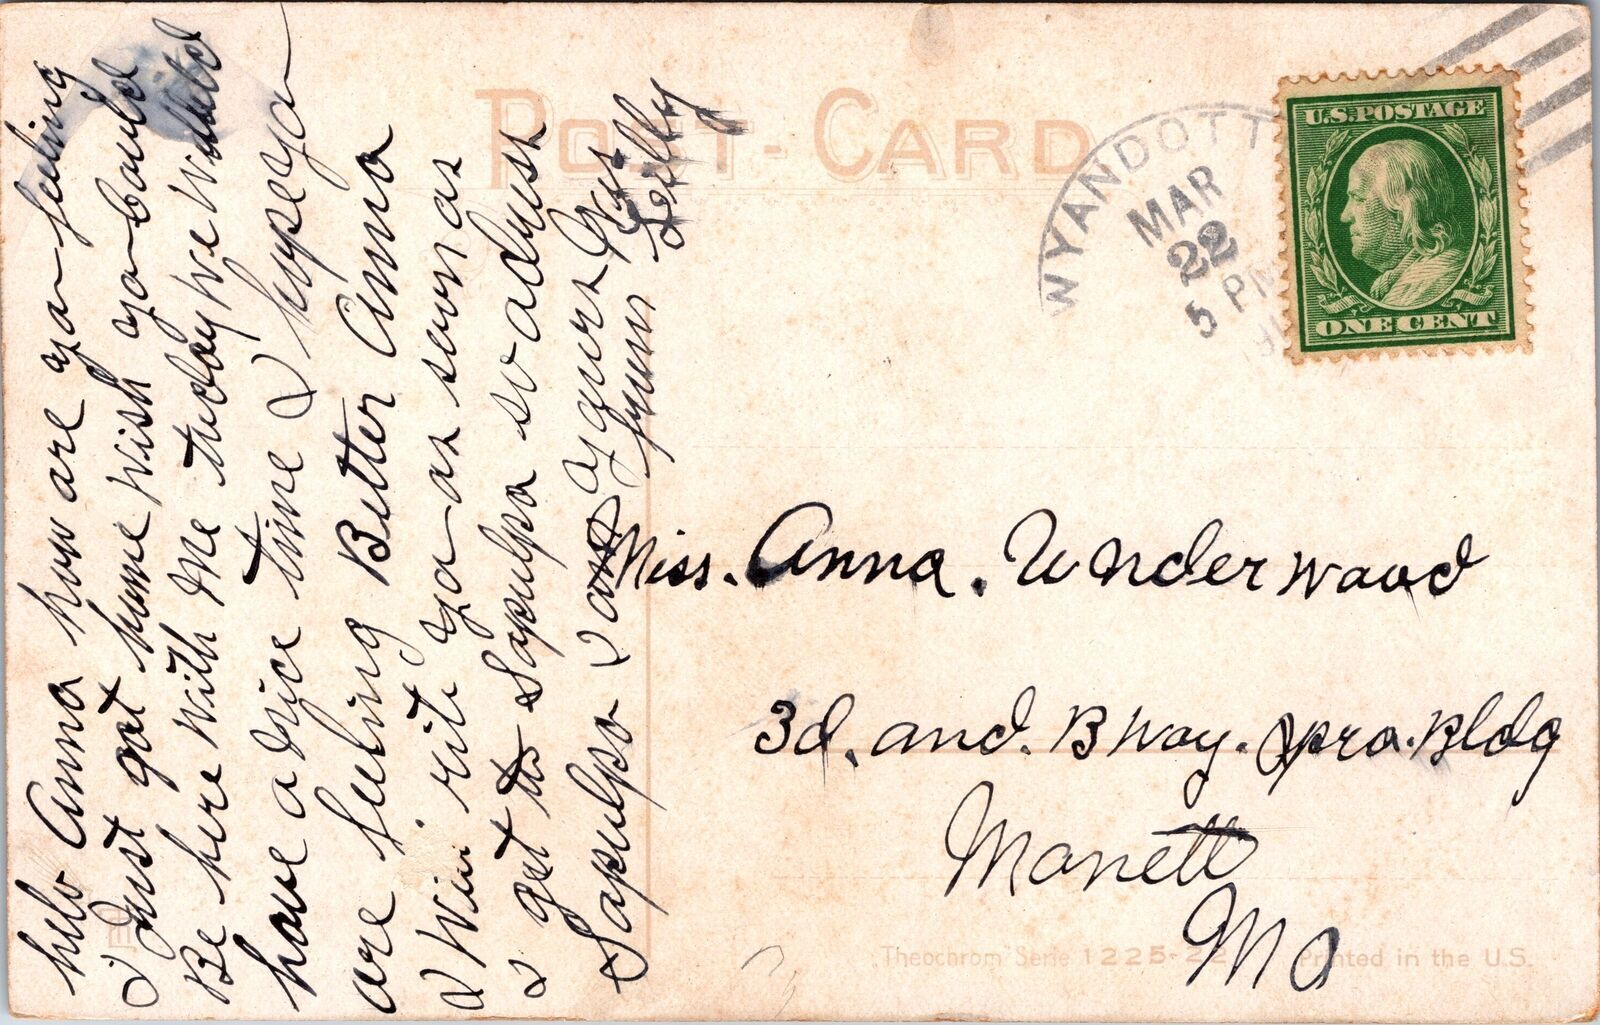 POST-CARD
WYANDOTT
MAR
22
5 PM
U.S. POSTAGE
ONE CENT
helo Anna how are ya feeling
I Just got home Wish ya Could
Be here With Me today We Would
have a Nice time I hope ya
are feeling Better Anna
I Will rite ya as soon as
I get to Sapulpa so adress
Sapulpo I am yours
from
Lilly
Miss. Anna. Underwood
3d. and. B Way. Opra. Bldg
Monett
Mo
Theochrom Serie 1225-22 Printed in the U.S.